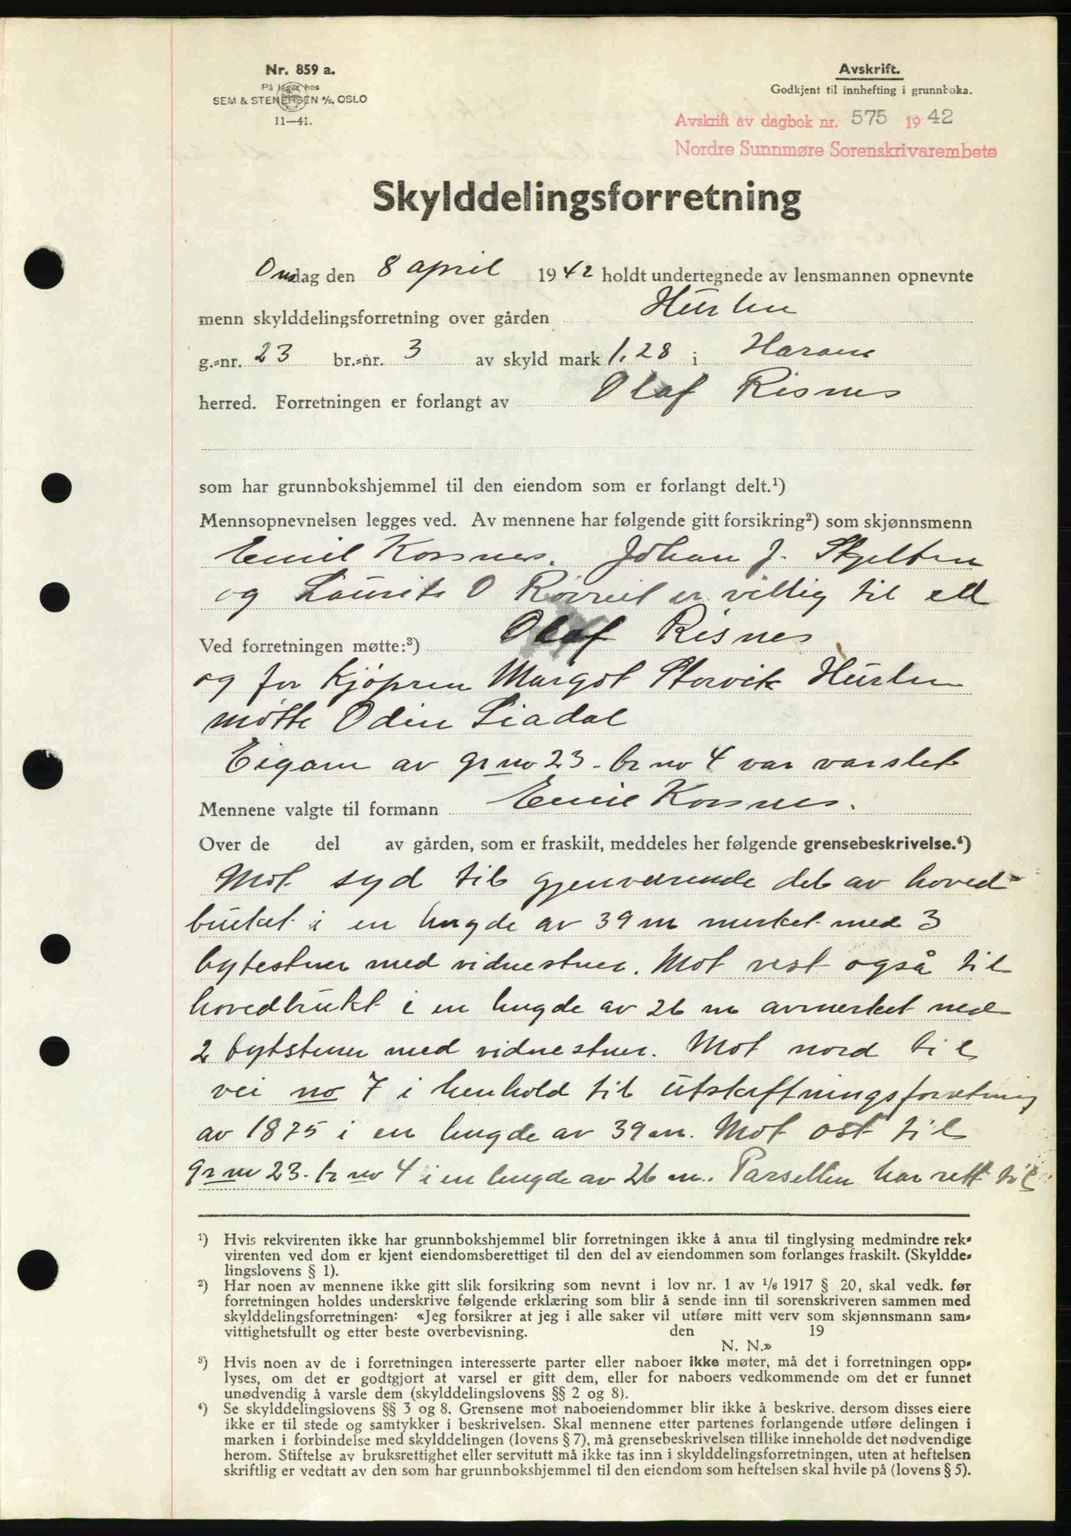 Nr. 859 a.
På lager hos
SEM & STENERSEN A/S, OSLO
11—41.
Avskrift.
Godkjent til innhefting i grunnboka.
Avskrift av dagbok nr. 575 1942
Nordre Sunnmøre Sorenskrivarembete
Skylddelingsforretning
Onsdag den 8 april 1942 holdt undertegnede av lensmannen opnevnte
menn skylddelingsforretning over gården Hurlen
g.-nr. 23 br.-nr. 3 av skyld mark 1.28 i Haram
herred. Forretningen er forlangt av Olaf Risnes
som har grunnbokshjemmel til den eiendom som er forlangt delt.¹)
Mennsopnevnelsen legges ved. Av mennene har følgende gitt forsikring²) som skjønnsmenn
Emil Korsnes. Johan J. Skjelten
og Laurits O Rørvik er villig til
Ved forretningen møtte:³) Olaf Risnes
og for kjøperen Margot Storvik Hurlen
møtte Odin Liadal
Eigaren av gr no 23 - br no 4 var varslet
Mennene valgte til formann Emil Korsnes.
Over de del av gården, som er fraskilt, meddeles her følgende grensebeskrivelse.⁴)
Mot syd til gjenværende del av hoved-
bruket i en lengde av 39 m merket med 3
bytestener med vidnestener. Mot vest også til
hovedbruket i en lengde av 26 m avmerket med
2 bytstener med vidnestener. Mot nord til
vei no 7 i henhold til utskiftningsforretning
av 1875 i en lengde av 39 m. Mot ost til
gr no 23. br no 4 i en lengde av 26 m. Parsellen har rett til
¹) Hvis rekvirenten ikke har grunnbokshjemmel blir forretningen ikke å anta til tinglysing medmindre rek-
virenten ved dom er kjent eiendomsberettiget til den del av eiendommen som forlanges fraskilt. (Skyldde-
lingslovens § 1).
²) Har noen av mennene ikke gitt slik forsikring som nevnt i lov nr. 1 av 1/6 1917 § 20, skal vedk. før
forretningen holdes underskrive følgende erklæring som blir å sende inn til sorenskriveren sammen med
skylddelingsforretningen: «Jeg forsikrer at jeg i alle saker vil utføre mitt verv som skjønnsmann sam-
vittighetsfullt og etter beste overbevisning. den 19
N. N.»
³) Hvis noen av de i forretningen interesserte parter eller naboer ikke møter, må det i forretningen opp-
lyses, om det er godtgjort at varsel er gitt dem, eller for naboers vedkommende om det er funnet
unødvendig å varsle dem (skylddelingslovens §§ 2 og 8).
⁴) Se skylddelingslovens §§ 3 og 8. Grensene mot naboeiendommer blir ikke å beskrive, dersom disses eiere
ikke er til stede og samtykker i beskrivelsen. Skal mennene etter partenes forlangende utføre delingen i
marken i forbindelse med skylddelingen (lovens § 7), må grensebeskrivelsen tillike inneholde det nødvendige
herom. Stiftelse av bruksrettighet eller servitutt må ikke tas inn i skylddelingsforretningen, uten at heftelsen
skriftlig er vedtatt av den som har grunnbokshjemmel til den eiendom som heftelsen skal hvile på (lovens § 5).